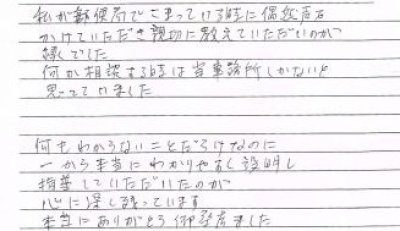 私が郵便局でこまっている時に偶然声を
かけていただき親切に教えていただいのが
縁でした
何か相談する時は当事務所しかないと
思っていました
何もわからないことだらけなのに
一から本当にわかりやすく説明し
指導していただいたのが
心に深く残っています
本当にありがとう御座居ました